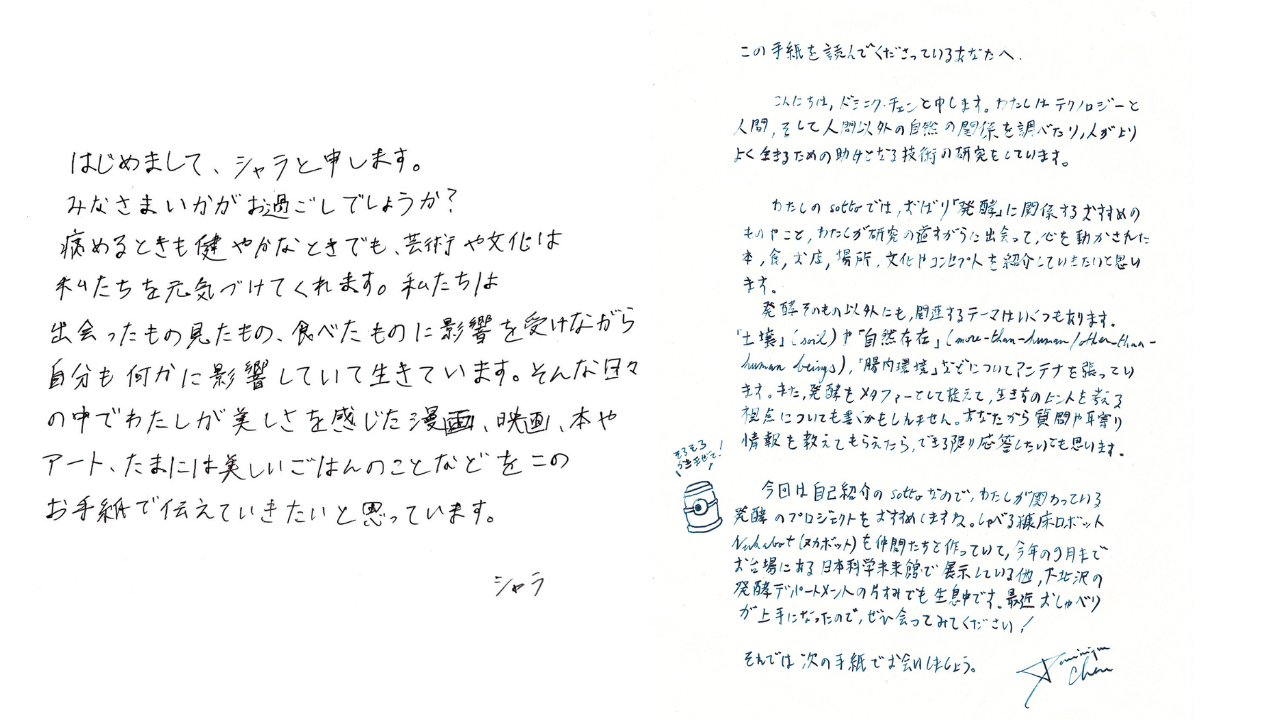 はじめまして、シャラと申します。
みなさまいかがお過ごしでしょうか？
病めるときも健やかなときでも、芸術や文化は
私たちを元気づけてくれます。私たちは
出会ったもの見たもの、食べたものに影響を受けながら
自分も何かに影響していて生きています。そんな日々
の中でわたしが美しさを感じた漫画、映画、本や
アート、たまには美しいごはんのことなどをこの
お手紙で伝えていきたいと思っています。
シャラ
この手紙を読んでくださっているあなたへ.
こんにちは,ドミニク・チェンと申します。わたしはテクノロジーと
人間,そして人間以外の自然の関係を調べたり,人がより
よく生きるための助けとなる技術の研究をしています。
わたしのsottoでは,やはり「発酵」に関係するおすすめの
ものやこと,わたしが研究の道すがらに出会って,心を動かされた
本,食,お店,場所,文化やコンセプト人を紹介していきたいと思い
ます。
発酵そのもの以外にも,関連するテーマはいくつもあります。
「土壌」(soil)や「自然存在」(more-than-human/other-than-
human beings),「腸内環境」などについてアンテナを張ってい
ます。また,発酵をメタファーとして捉えて,生き方のヒントを考える
視点についても書くかもしれません。あなたから質問や耳寄り
情報を教えてもらえたら,できる限り応答したいとも思います。
そろそろ
!
今回は自己紹介のsottoなので,わたしが関わっている
発酵のプロジェクトをおすすめしますね。しゃべる糠床ロボット
Nukabot(ヌカボット)を仲間たちと作っていて,今年の9月まで
お台場にある日本科学未来館で展示している他,下北沢の
発酵デパートメントの片すみでも生息中です。最近おしゃべり
が上手になったので,ぜひ会ってみてください!
それでは次の手紙でお会いしましょう。
Dominique
Chen